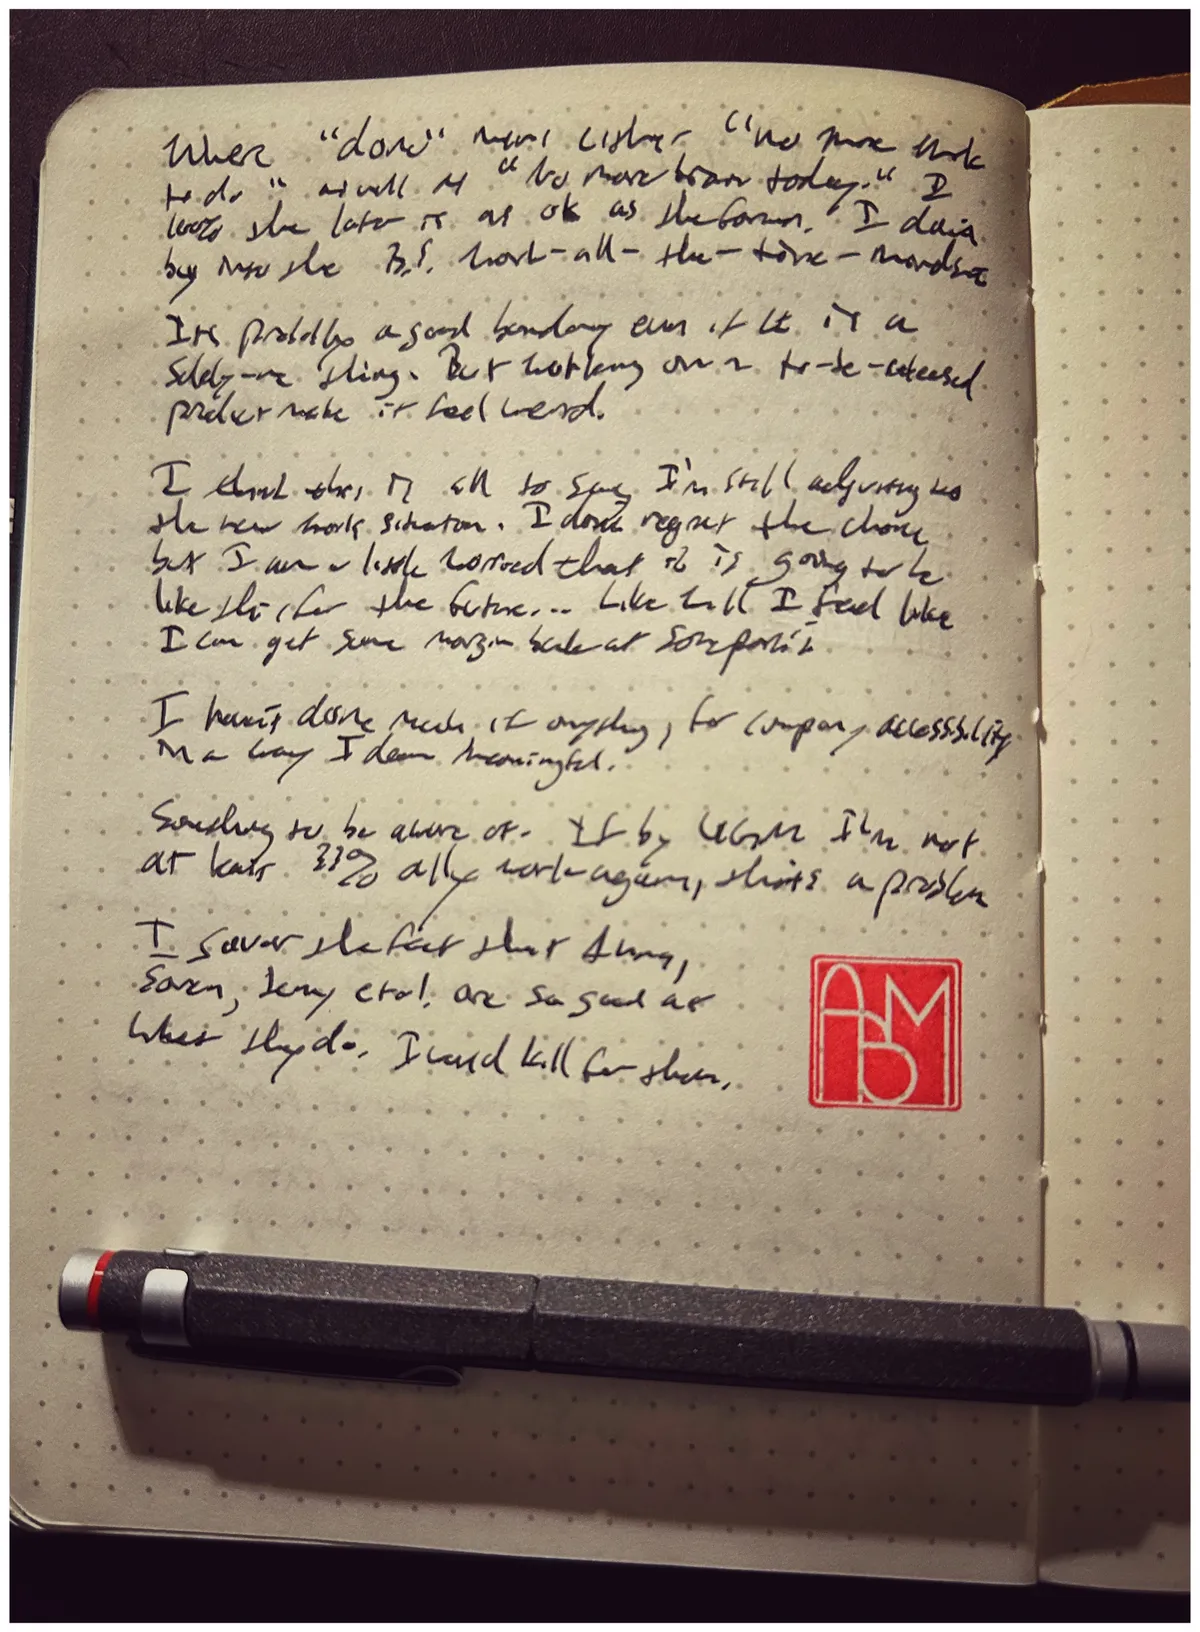 Where "done" means either "no more work
to do" as well as "no more brain today." I
100% the later is as ok as the former. I
buy into the B.S. work-all-the-time-mindset
It's probably a good boundary even if it is a
thing. But working on a to-be-released
product make it feel weird.
I think this is all to say I'm still adjusting to
the new work situation. I don't regret the choice
but I am a little worried that it is going to be
like this for the future... Like will I feel like
I can get some margin back at some point
I haven't done much if anything, for company accessibility
in a way I deem meaningful.
Something to be aware of. If by I'm not
at least 33% a11y work again, that's a problem
I savor the fact that
Soren, etc. are so good at
what they do. I would kill for them.
ABM